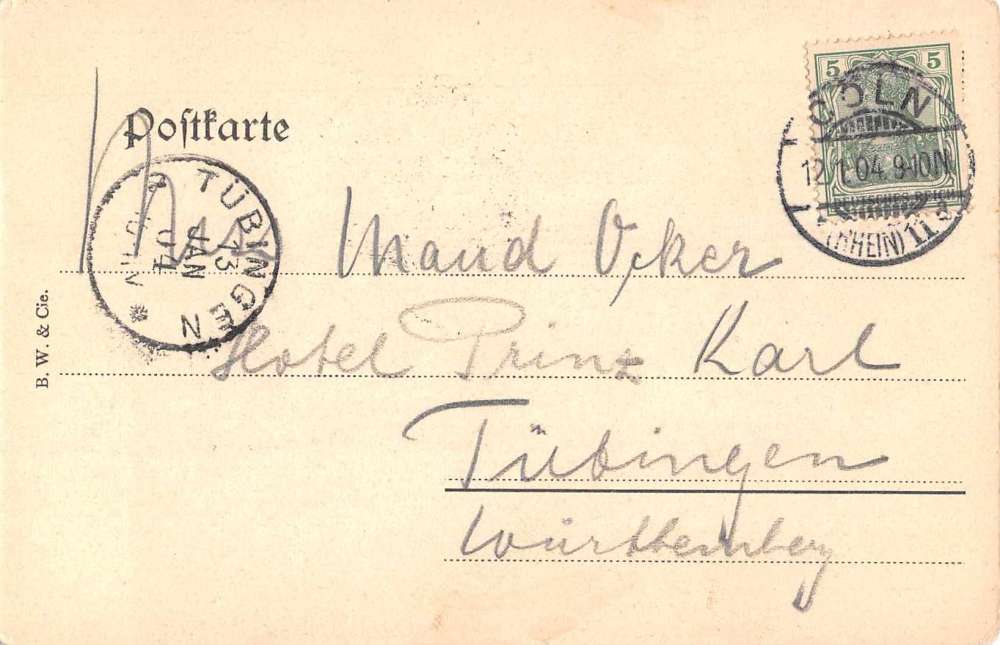 Postkarte
5 5
CÖLN
12.1.04. 9-10 N
(RHEIN) 11
DEUTSCHES REICH
TÜBINGEN
13
JAN
04
Maud Ocker
Hotel Prinz Karl
Tübingen
Württemberg
B. W. & Cie.